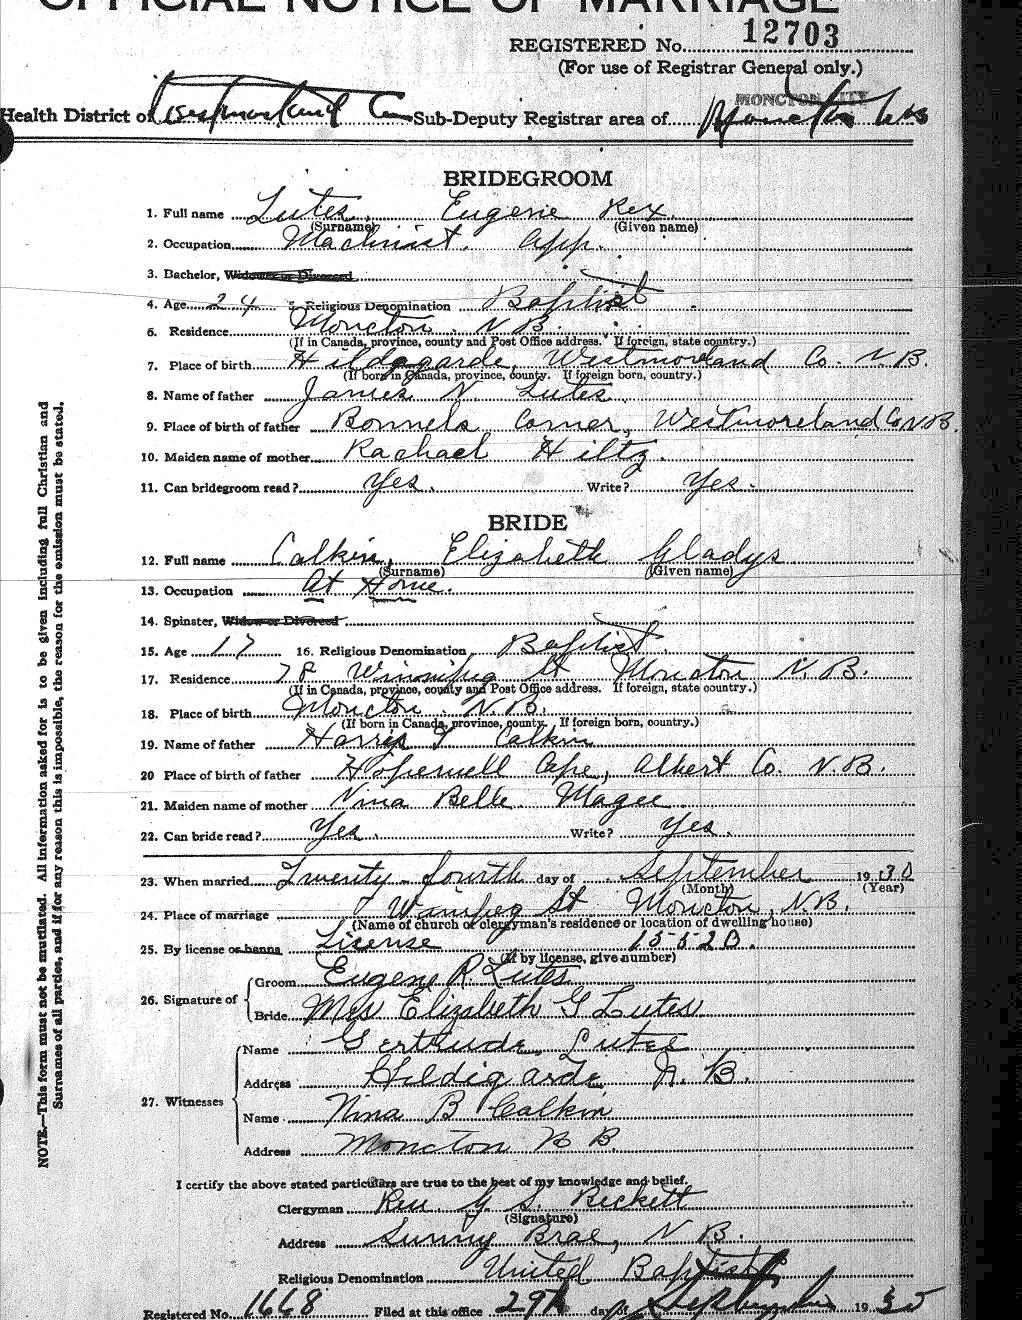 OFFICIAL NOTICE OF MARRIAGE
REGISTERED No. 12703
(For use of Registrar General only.)
MONCTON CITY
Health District of Westmorland Co Sub-Deputy Registrar area of Moncton
BRIDEGROOM
1. Full name Lutes, Eugene Rex.
(Surname) (Given name)
2. Occupation Machinist. App.
3. Bachelor, Widower or Divorced
4. Age 24 5. Religious Denomination Baptist
6. Residence Moncton. N.B.
(If in Canada, province, county and Post Office address. If foreign, state country.)
7. Place of birth Hildegarde, Westmoreland Co. N.B.
(If born in Canada, province, county. If foreign born, country.)
8. Name of father James N. Lutes.
9. Place of birth of father Bonnels Corner, Westmoreland Co N.B.
10. Maiden name of mother Rachael Hiltz.
11. Can bridegroom read? Yes. Write? Yes.
BRIDE
12. Full name Calkin, Elizabeth Gladys
(Surname) (Given name)
13. Occupation At Home.
14. Spinster, Widow or Divorced
15. Age 17 16. Religious Denomination Baptist.
17. Residence 78 Winnipeg St Moncton N.B.
(If in Canada, province, county and Post Office address. If foreign, state country.)
18. Place of birth Moncton. N.B.
(If born in Canada, province, county. If foreign born, country.)
19. Name of father Harris T Calkin
20 Place of birth of father Hopewell Cape, Albert Co. N.B.
21. Maiden name of mother Nina Belle Magee
22. Can bride read? Yes. Write? Yes.
23. When married Twenty-fourth day of September 1930
(Month) (Year)
24. Place of marriage Winnipeg St Moncton, N.B.
(Name of church or clergyman's residence or location of dwelling house)
25. By license or banns License 15520.
(If by license, give number)
26. Signature of
Groom Eugene R Lutes
Bride Mrs Elizabeth G Lutes
27. Witnesses
Name Gertrude Lutes
Address Hildigarde N.B.
Name Nina B Calkin
Address Moncton N B
I certify the above stated particulars are true to the best of my knowledge and belief.
Clergyman Rev. G. S. Beckett
(Signature)
Address Sunny Brae, N.B.
Religious Denomination United Baptist
Registered No. 1668 Filed at this office 29th day of September 1930
NOTE.—This form must not be mutilated. All information asked for is to be given including full Christian and
Surnames of all parties, and if for any reason this is impossible, the reason for the omission must be stated.